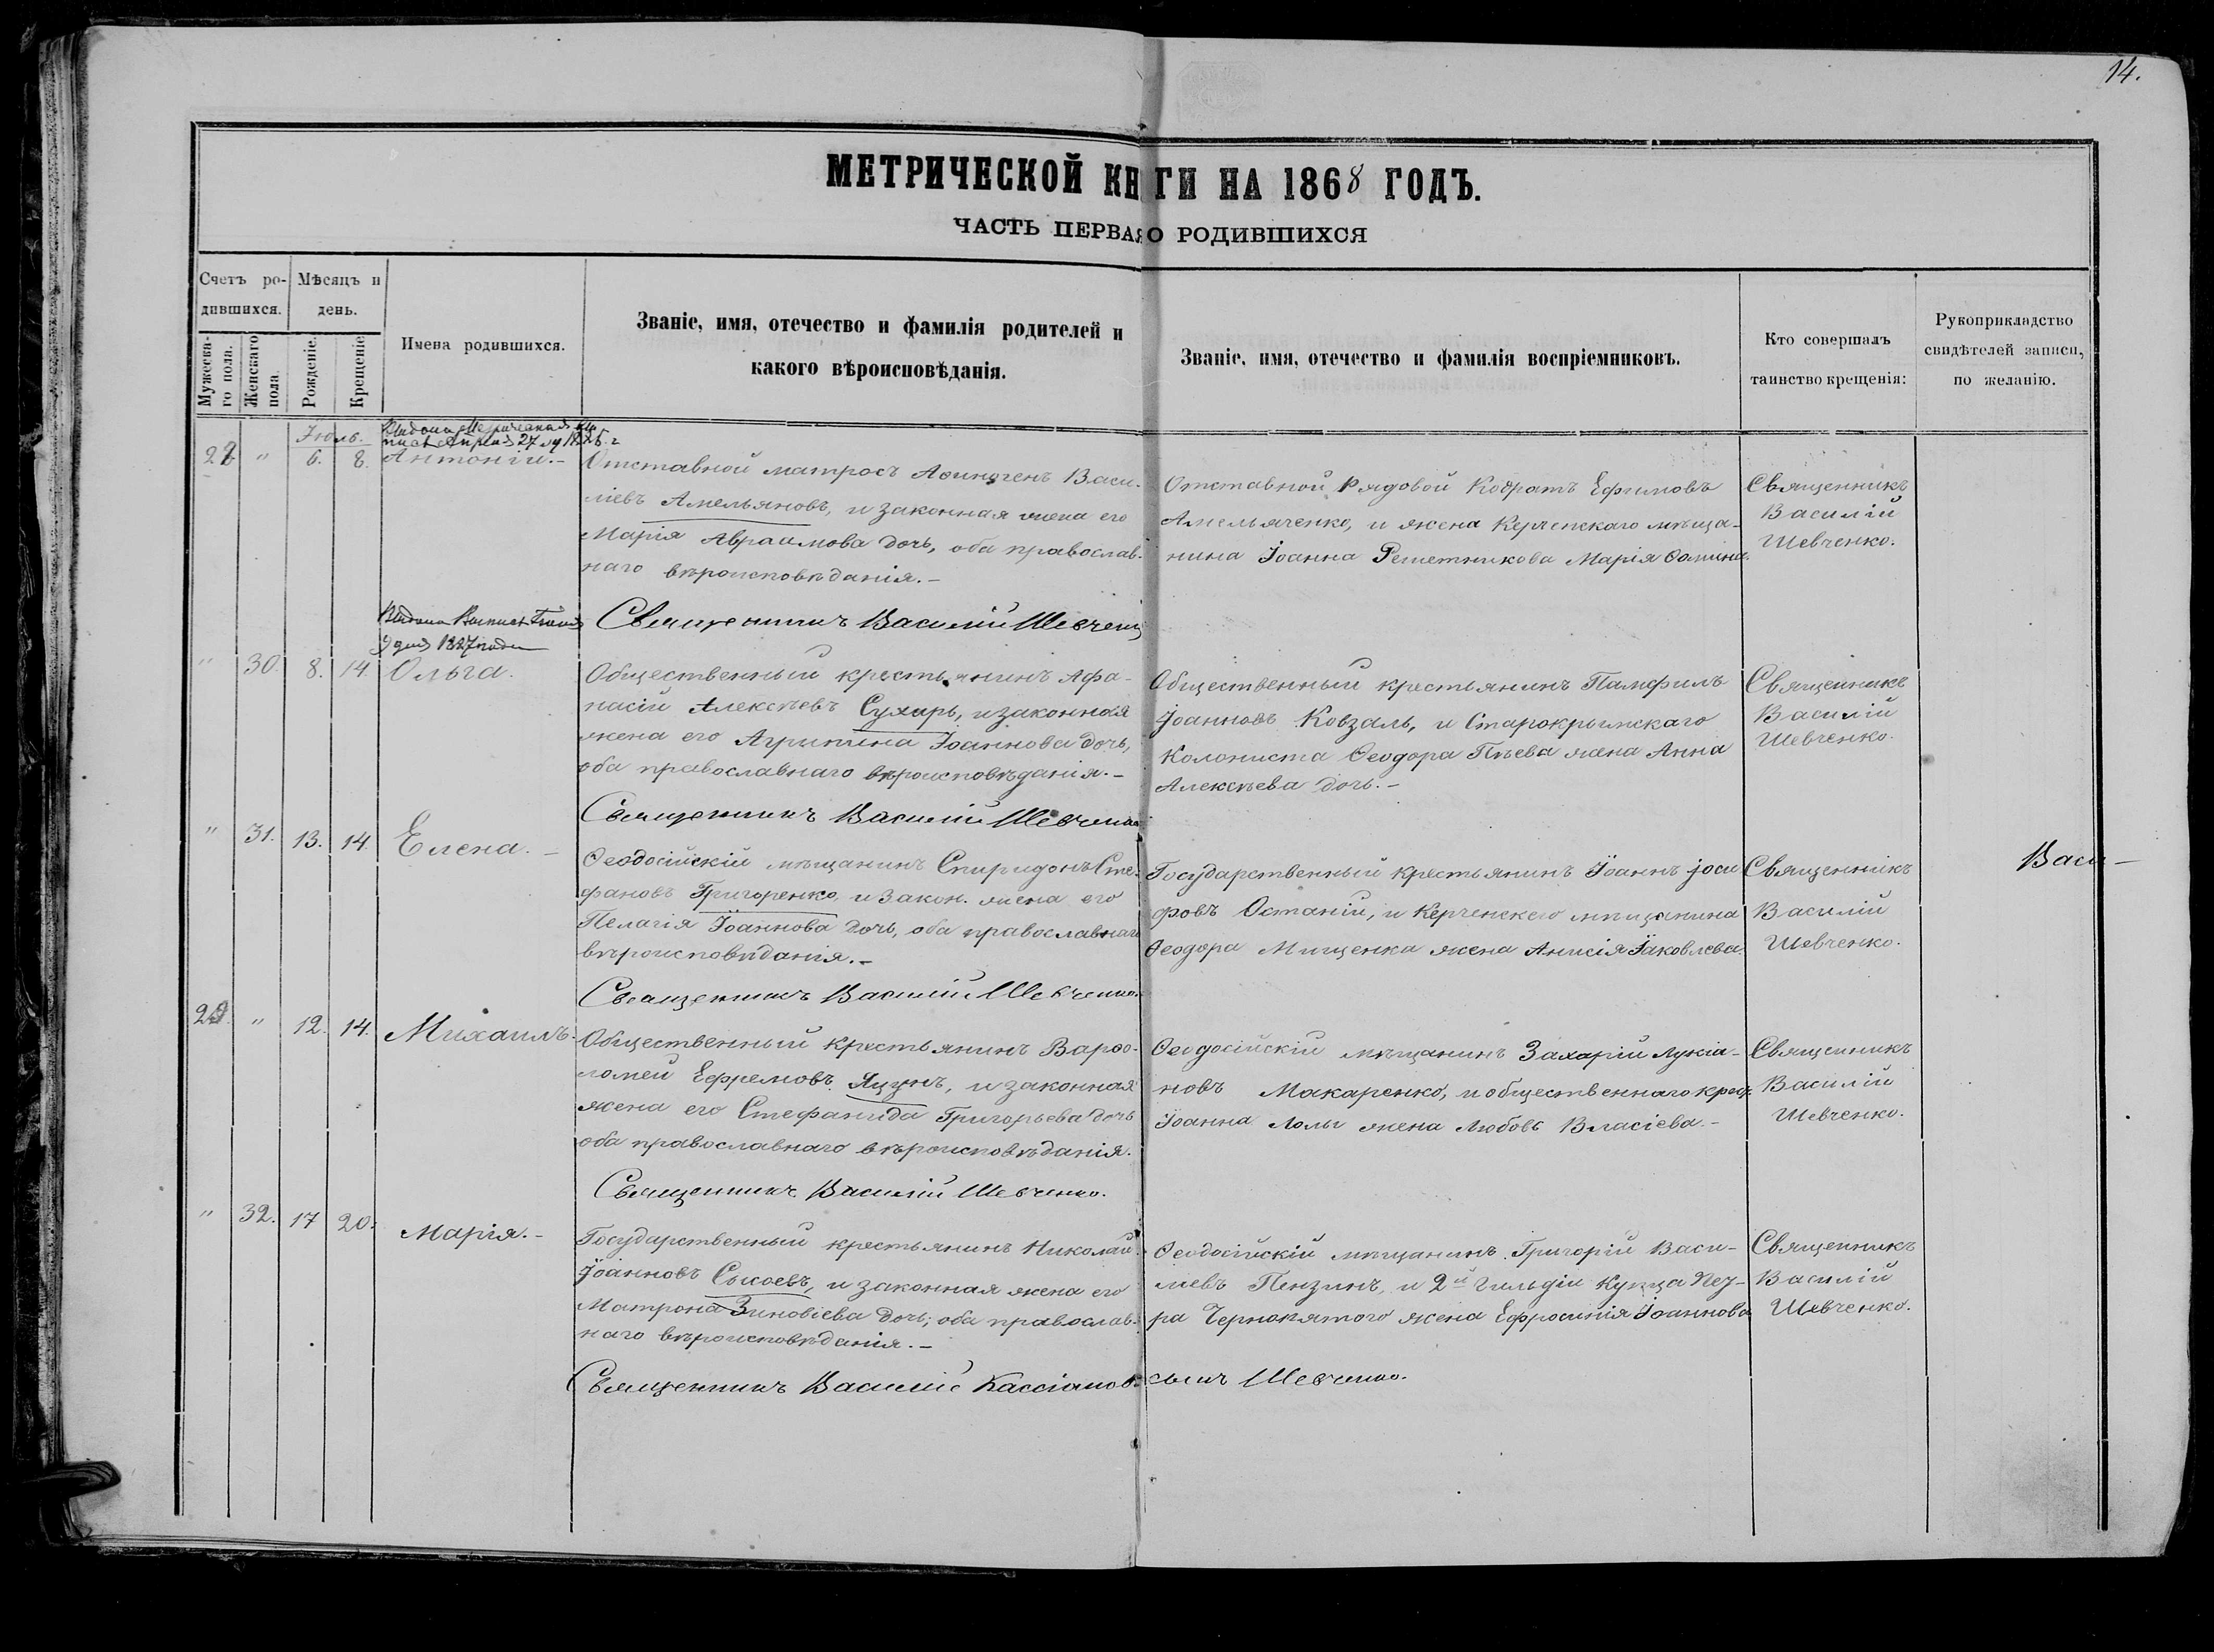 14.
МЕТРИЧЕСКОЙ КНИГИ НА 1868 ГОДЪ.
ЧАСТЬ ПЕРВАЯ О РОДИВШИХСЯ
Счетъ ро-
дившихся.
Мужеска-
го пола.
Женскаго
пола.
Мѣсяцъ и
день.
Рожденіе.
Крещеніе
Имена родившихся.
Званіе, имя, отечество и фамилія родителей и
какого вѣроисповѣданія.
Званіе, имя, отечество и фамилія воспріемниковъ.
Кто совершалъ
таинство крещенія:
Рукоприкладство
свидѣтелей записи,
по желанію.
Іюль.
28 " 6. 8. Антоній.-
Отставной матросъ Аѳиногенъ Васи-
ліевъ Амельяновъ, и законная жена его
Марія Авраамова дочь, оба православ-
наго вѣроисповѣданія.-
Священникъ Василій Шевченко
Отставной Рядовой Кодратъ Ефимовъ
Амельяченко, и жена Керченскаго мѣща-
нина Іоанна Решетникова Марія Ѳомина.
Священникъ
Василій
Шевченко.
" 30. 8. 14. Ольга.
Общественный крестьянинъ Афа-
насій Алексѣевъ Сухарь, и законная
жена его Агрипина Іоаннова дочь,
оба православнаго вѣроисповѣданія.-
Священникъ Василій Шевченко
Общественный крестьянинъ Памфилъ
Іоанновъ Ковзаль, и Старокрымскаго
Колониста Ѳеодора Пѣева жена Анна
Алексѣева дочь.-
Священникъ
Василій
Шевченко.
" 31. 13. 14. Елена.-
Ѳеодосійскій мѣщанинъ Спиридонъ Сте-
фановъ Григоренко, и закон. жена его
Пелагія Іоаннова дочь, оба православнаго
вѣроисповѣданія.-
Священникъ Василій Шевченко.
Государственный крестьянинъ Іоаннъ Іоси
фовъ Останій, и Керченскаго мѣщанина
Ѳеодора Мищенка жена Анисія Іаковлева.
Священникъ
Василій
Шевченко.
Васи-
29. " 12. 14. Михаилъ.
Общественный крестьянинъ Варѳо-
ломей Ефремовъ Яцунъ, и законная
жена его Стефанида Григорьева дочь
оба православнаго вѣроисповѣданія.
Священникъ Василій Шевченко.
Ѳеодосійскій мѣщанинъ Захарій Лукіа-
новъ Макаренко, и общественнаго крест.
Іоанна Лолы жена Любовь Власіева.-
Священникъ
Василій
Шевченко.
" 32. 17 20. Марія.-
Государственный крестьянинъ Николай
Іоанновъ Сысоевъ, и законная жена его
Матрона Зиновіева дочь; оба православ-
наго вѣроисповѣданія.-
Священникъ Василій Кассіановъ сынъ Шевченко.
Ѳеодосійскій мѣщанинъ Григорій Васи-
ліевъ Пензинъ, и 2й Гильдіи Купца Пет-
ра Чернопятого жена Ефросинія Іоаннова
Священникъ
Василій
Шевченко.